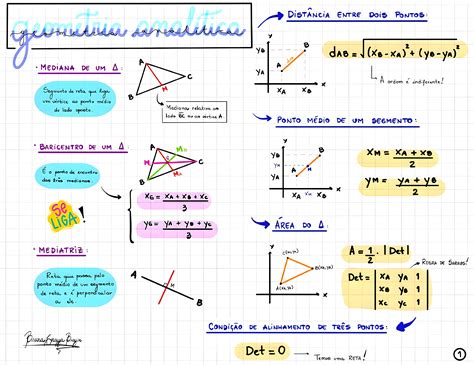 geometria analítica
• MEDIANA DE UM Δ:
Segmento de reta que liga
um vértice ao ponto médio
do lado oposto.
A
B
M
C
Mediana relativa ao
lado BC ou ao vértice A.
• BARICENTRO DE UM Δ:
É o ponto de encontro
das três medianas.
SE
LIGA!
A
B
C
XG = XA + XB + XC / 3
YG = YA + YB + YC / 3
• MEDIATRIZ:
Reta que passa pelo
ponto médio de um segmento
de reta, e é perpendicular
a ele.
A
M
B
• DISTÂNCIA ENTRE DOIS PONTOS:
y
YB
YA
A
B
XA
XB
x
dAB = √(XB - XA)² + (YB - YA)²
A ordem é indiferente!
• PONTO MÉDIO DE UM SEGMENTO:
y
YB
YM
YA
A
B
XA
XM
XB
x
XM = XA + XB / 2
YM = YA + YB / 2
• ÁREA DO Δ:
y
x
A = 1/2 . |Det|
REGRA DE SARRUS!
Det = | XA YA 1
XB YB 1
XC YC 1 |
CONDIÇÃO DE ALINHAMENTO DE TRÊS PONTOS:
Det = 0
TEMOS UMA RETA!
1